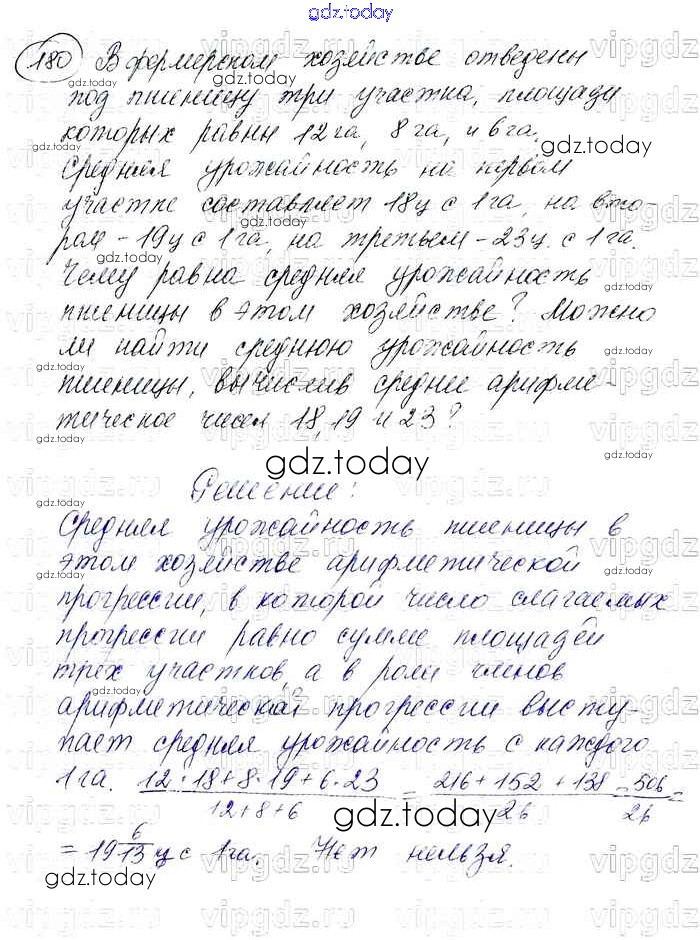 gdz.today
180 В фермерском хозяйстве отведены
под пшеницу три участка, площади
которых равны 12 га, 8 га, и 6 га.
Средняя урожайность на первом
участке составляет 18 ц с 1 га, на вто-
ром - 19 ц с 1 га, на третьем - 23 ц. с 1 га.
Чему равна средняя урожайность
пшеницы в этом хозяйстве? Можно
ли найти среднюю урожайность
пшеницы, вычислив среднее арифме-
тическое чисел 18, 19 и 23?
gdz.today
Решение:
Средняя урожайность пшеницы в
этом хозяйстве арифметической
прогрессии, в которой число слагаемых
прогрессии равно сумме площадей
трёх участков, а в роли членов
арифметической прогрессии высту-
пает средняя урожайность с каждого
1 га. (12·18+8·19+6·23)/(12+8+6) = (216+152+138)/26 = 506/26 =
= 19 6/13 ц с 1 га. Нет нельзя.
gdz.today